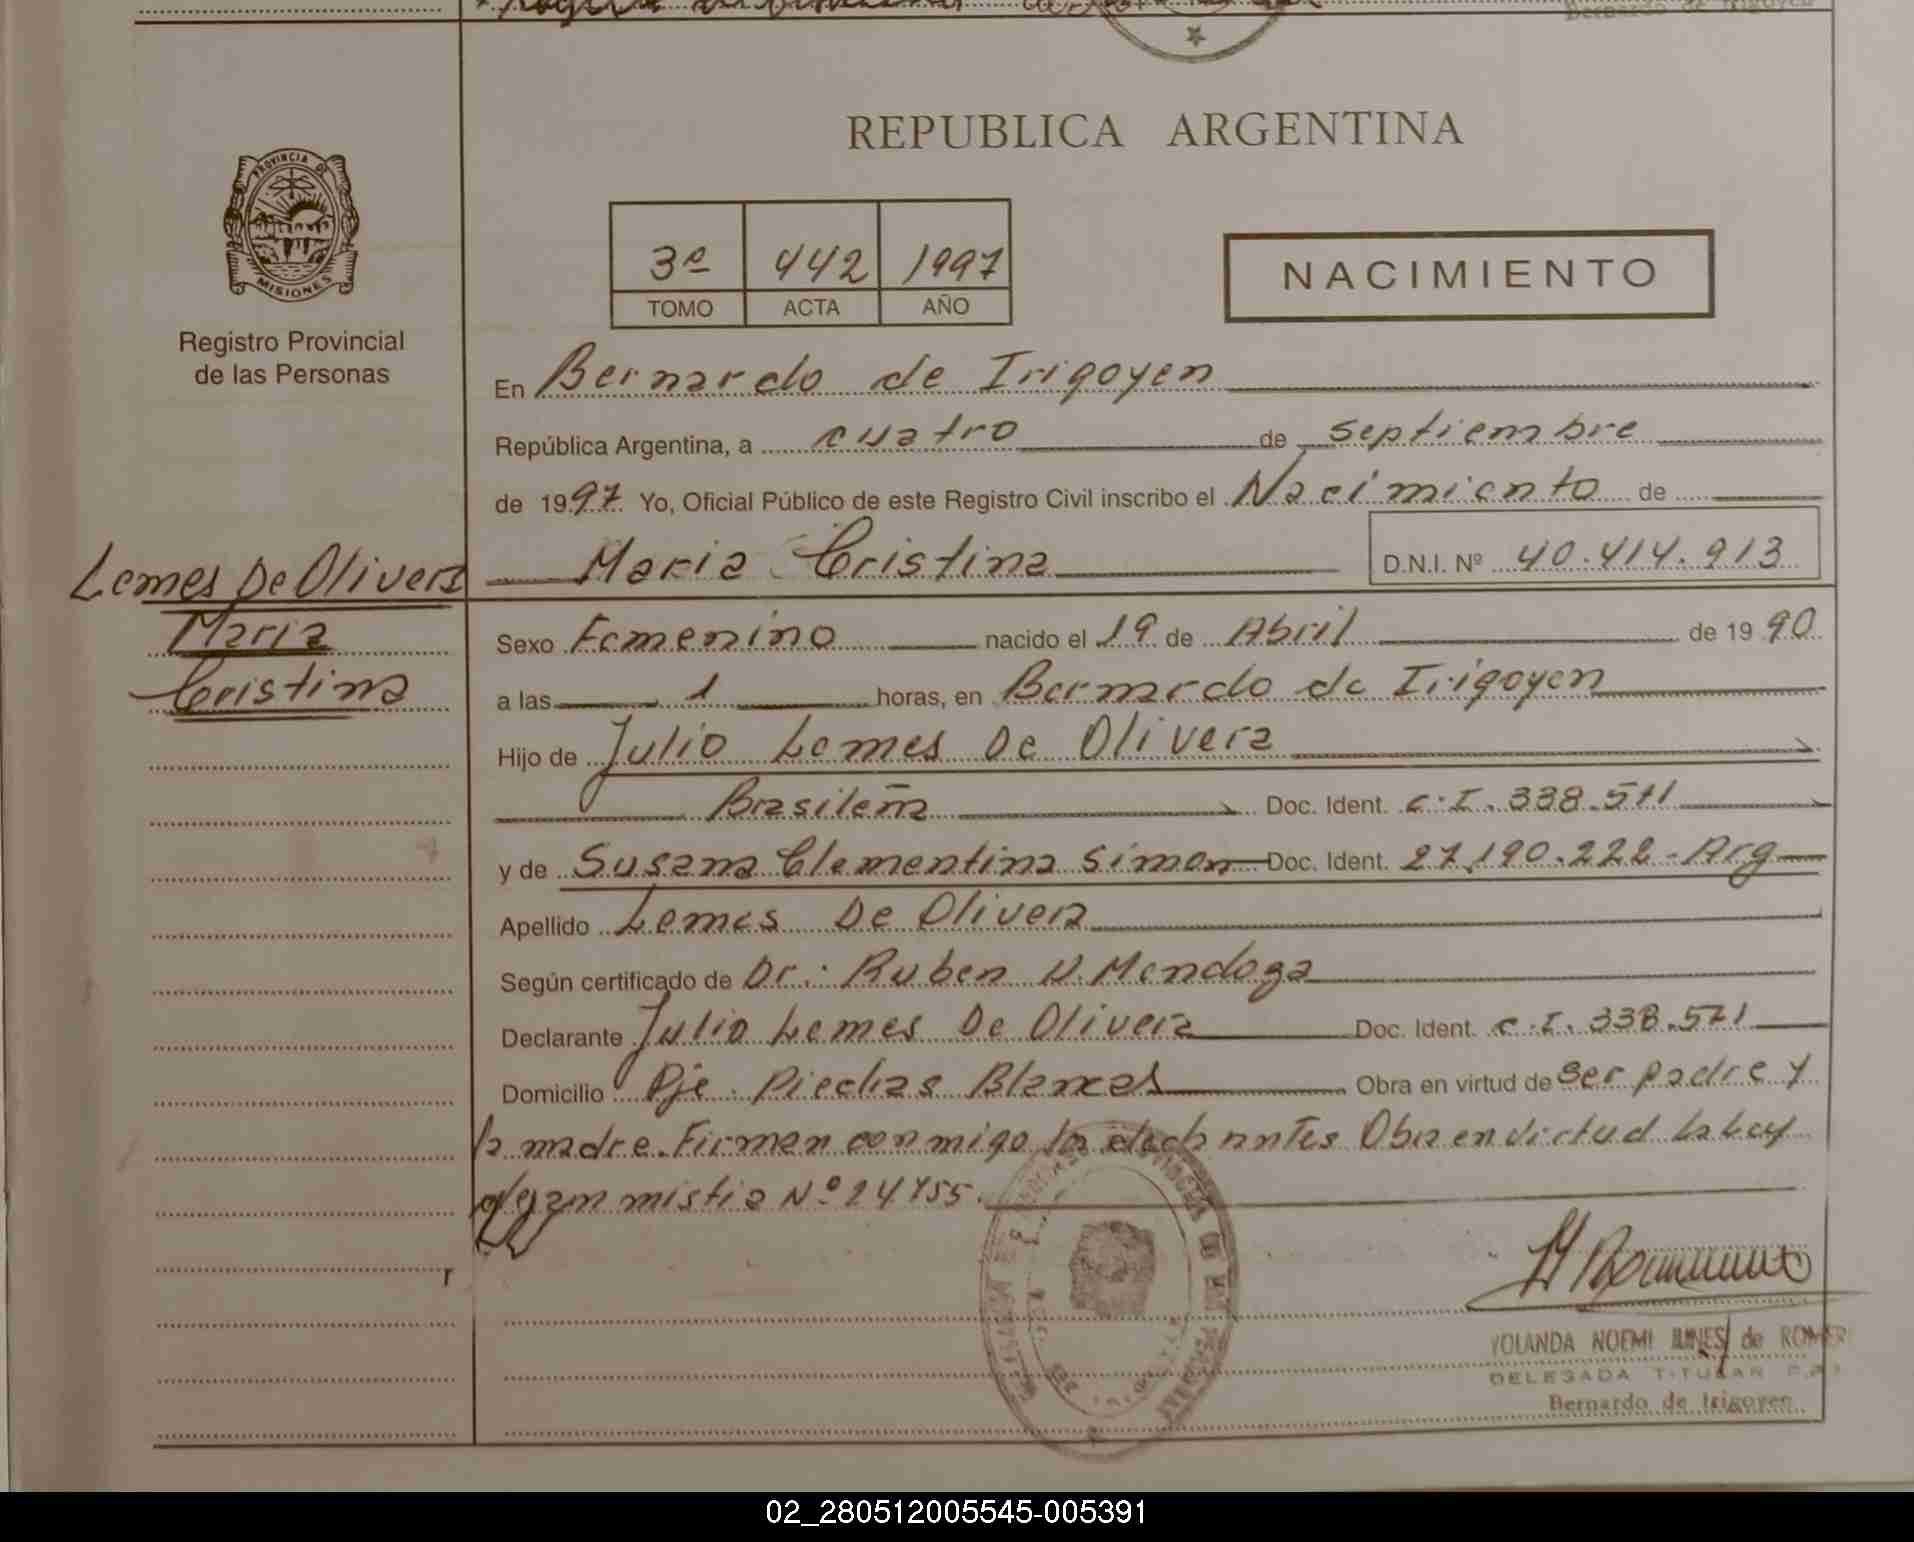 Bernardo de Irigoyen
REPUBLICA ARGENTINA
PROVINCIA DE
MISIONES
Registro Provincial
de las Personas
3º 442 1997
TOMO ACTA AÑO
NACIMIENTO
En Bernardo de Irigoyen
República Argentina, a cuatro de septiembre
de 1997 Yo, Oficial Público de este Registro Civil inscribo el Nacimiento de
Maria Cristina D.N.I. Nº 40.414.913
Lemes De Olivera
Maria
Cristina
Sexo Femenino nacido el 19 de Abril de 1990
a las 1 horas, en Bernardo de Irigoyen
Hijo de Julio Lemes De Olivera
Brasileña Doc. Ident. C.I. 338.571
y de Susana Clementina Simon Doc. Ident. 27.190.222-Arg
Apellido Lemes De Olivera
Según certificado de Dr. Ruben D. Mendoza
Declarante Julio Lemes De Olivera Doc. Ident. C.I. 338.571
Domicilio Pje. Piedras Blancas Obra en virtud de Ser padre y
la madre. Firman conmigo los Obra en virtud la Ley
de amnistia Nº 24755.
YOLANDA NOEMI de ROMERO
DELEGADA TITULAR
Bernardo de Irigoyen
02_280512005545-005391